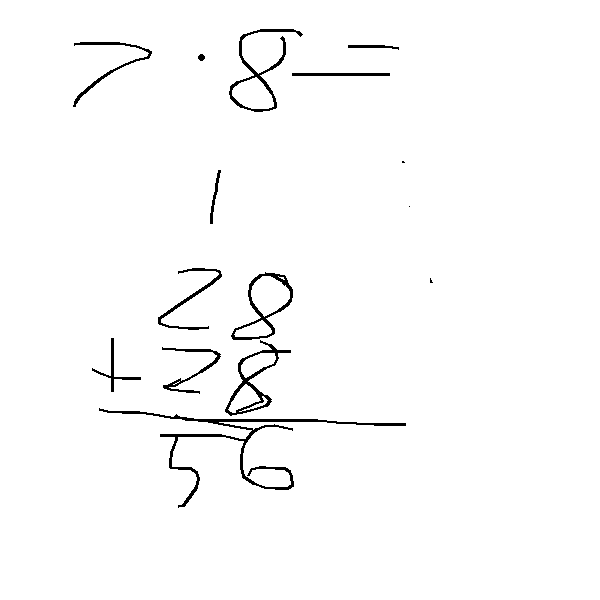 7 · 8 =
1
28
+ 28
56